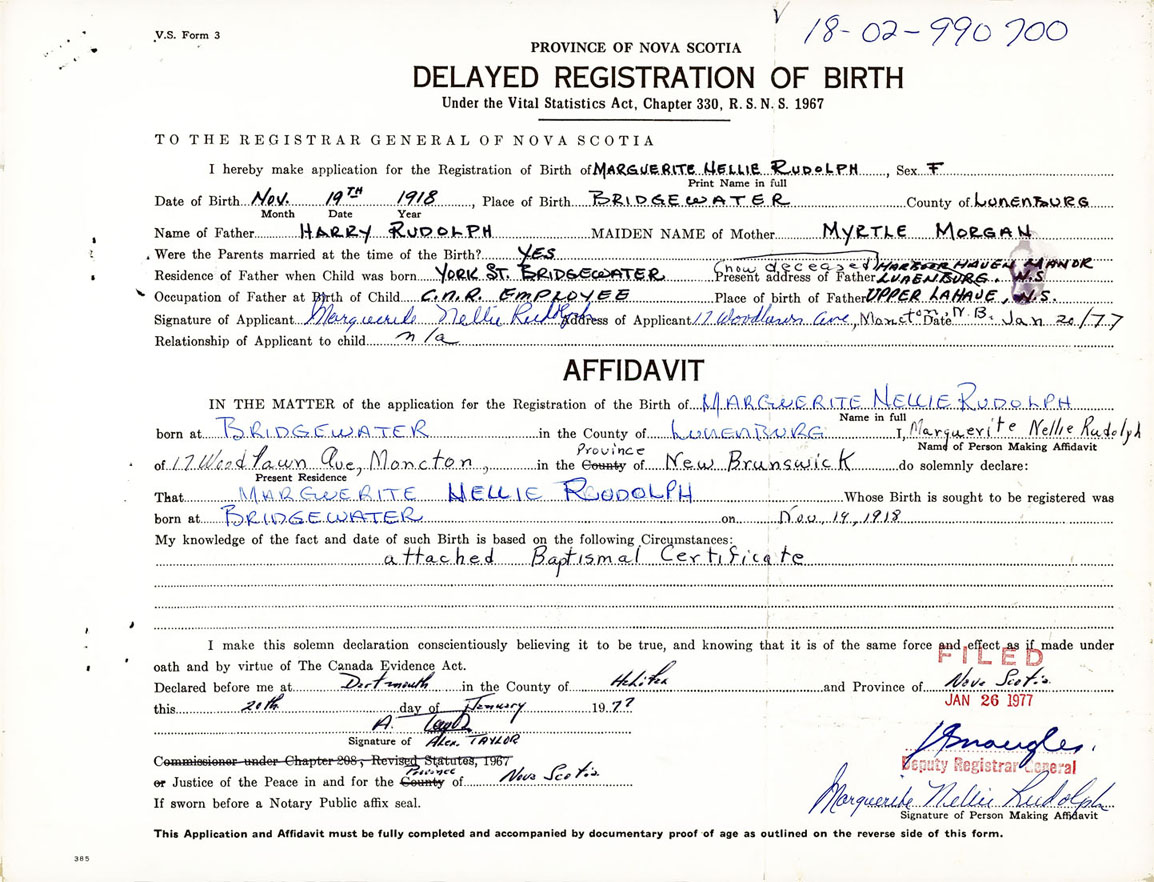 V.S. Form 3
18-02-990 700
PROVINCE OF NOVA SCOTIA
DELAYED REGISTRATION OF BIRTH
Under the Vital Statistics Act, Chapter 330, R. S. N. S. 1967
TO THE REGISTRAR GENERAL OF NOVA SCOTIA
I hereby make application for the Registration of Birth of MARGUERITE NELLIE RUDOLPH, Sex F
Print Name in full
Date of Birth NOV. 19TH 1918, Place of Birth BRIDGEWATER County of LUNENBURG
Month Date Year
Name of Father HARRY RUDOLPH MAIDEN NAME of Mother MYRTLE MORGAN
Were the Parents married at the time of the Birth? YES
(now deceased) HARBOUR HAVEN MANOR
Residence of Father when Child was born YORK ST. BRIDGEWATER Present address of Father LUNENBURG, N.S.
Occupation of Father at Birth of Child C.N.R. EMPLOYEE Place of birth of Father UPPER LAHAVE, N.S.
Signature of Applicant Marguerite Nellie Rudolph Address of Applicant 17 Woodlawn Ave, Moncton, N.B. Date Jan 20/77
Relationship of Applicant to child n/a
AFFIDAVIT
IN THE MATTER of the application for the Registration of the Birth of MARGUERITE NELLIE RUDOLPH
Name in full
born at BRIDGEWATER in the County of LUNENBURG I, Marguerite Nellie Rudolph
Name of Person Making Affidavit
Province
of 17 Woodlawn Ave, Moncton, in the County of New Brunswick do solemnly declare:
Present Residence
That MARGUERITE NELLIE RUDOLPH Whose Birth is sought to be registered was
born at BRIDGEWATER on Nov. 19, 1918
My knowledge of the fact and date of such Birth is based on the following Circumstances:
attached Baptismal Certificate
I make this solemn declaration conscientiously believing it to be true, and knowing that it is of the same force and effect as if made under
FILED
oath and by virtue of The Canada Evidence Act.
Declared before me at Dartmouth in the County of Halifax and Province of Nova Scotia
this 20th day of January 1977
JAN 26 1977
A. Taylor
Signature of Alex. TAYLOR
Commissioner under Chapter 208, Revised Statutes, 1967
Province
or Justice of the Peace in and for the County of Nova Scotia
Deputy Registrar General
If sworn before a Notary Public affix seal.
Marguerite Nellie Rudolph
Signature of Person Making Affidavit
This Application and Affidavit must be fully completed and accompanied by documentary proof of age as outlined on the reverse side of this form.
385